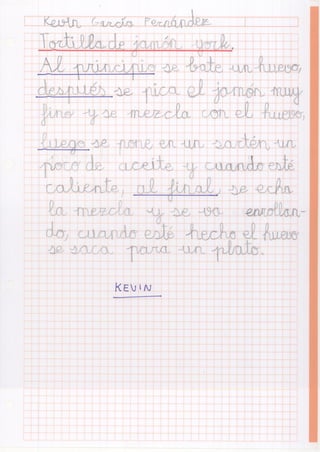 Kevin García Fernández
Tortilla de jamón york.
Al principio se bate un huevo,
después se pica el jamón muy
fino y se mezcla con el huevo,
luego se pone en un sartén, un
poco de aceite y cuando esté
caliente, al final, se echa
la mezcla y se va enrollan-
do, cuando esté hecho el huevo
se saca para un plato.
KEVIN